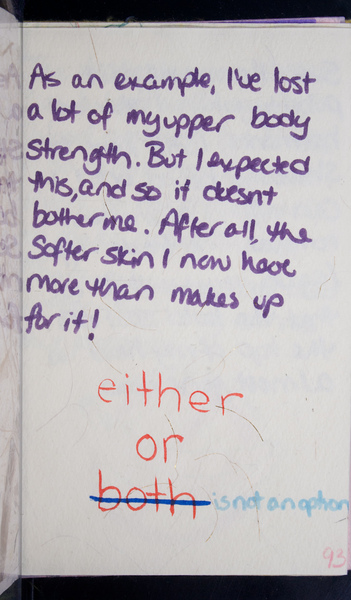 As an example, I've lost
a lot of my upper body
strength. But I expected
this, and so it doesnt
bother me. After all, the
softer skin I now have
more than makes up
for it!
either
or
both is not an option
93